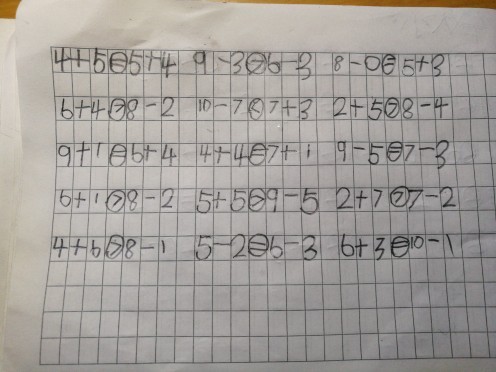 4+5=5+4 9-3>6-3 8-0=5+3
6+4>8-2 10-7<7+3 2+5>8-4
9+1=6+4 4+4=7+1 9-5=7-3
6+1>8-2 5+5>9-5 2+7>7-2
4+6>8-1 5-2=6-3 6+3=10-1